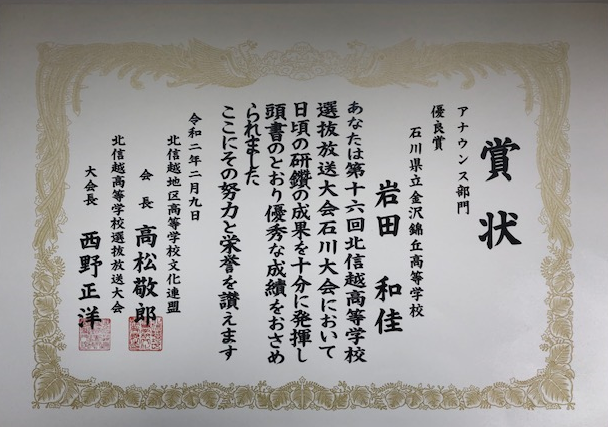 賞状
アナウンス部門
優良賞
石川県立金沢錦丘高等学校
岩田 和佳
あなたは第十六回北信越高等学校
選抜放送大会石川大会において
日頃の研鑽の成果を十分に発揮し
頭書のとおり優秀な成績をおさめ
られました
ここにその努力と栄誉を讃えます
令和二年二月九日
北信越地区高等学校文化連盟
会長 高松敬郎
北信越高等学校選抜放送大会
大会長 西野正洋